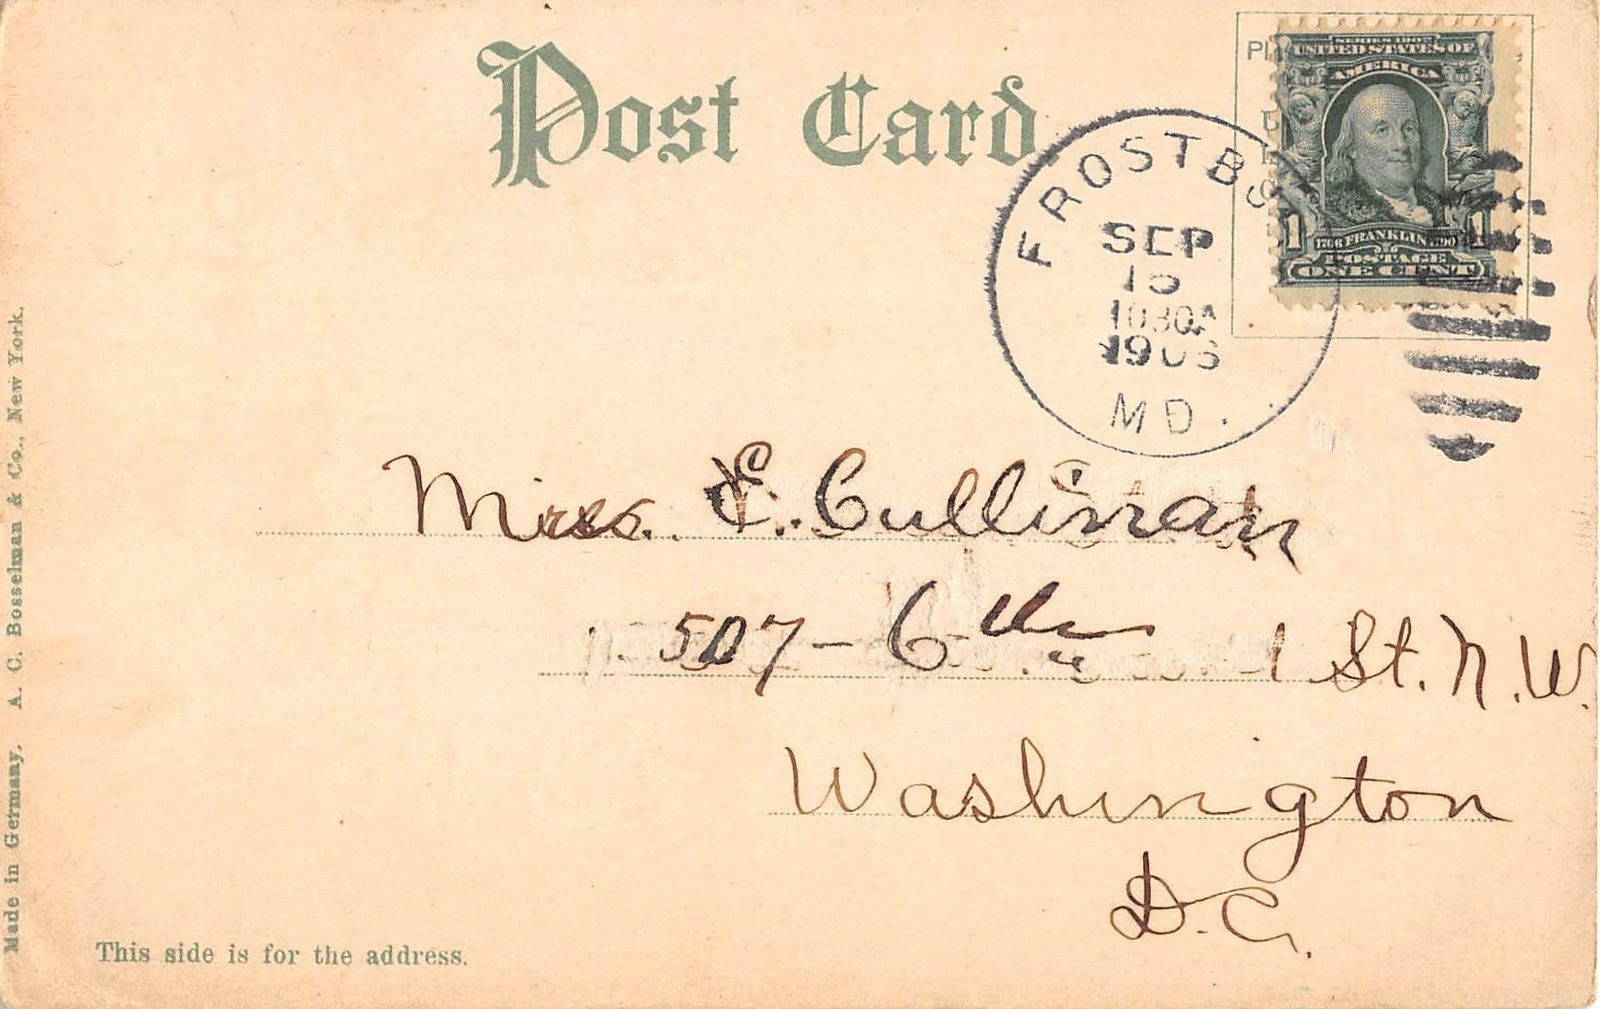 Post Card.
SERIES 1902
UNITED STATES OF
AMERICA
1 1706 FRANKLIN 1790 1
POSTAGE
ONE CENT
FROSTB
SEP
15
1030A
1906
MD.
Miss. E. Cullinan
507 - 6th St. N.W.
Washington
D.C.
This side is for the address.
Made in Germany. A. C. Bosselman & Co., New York.